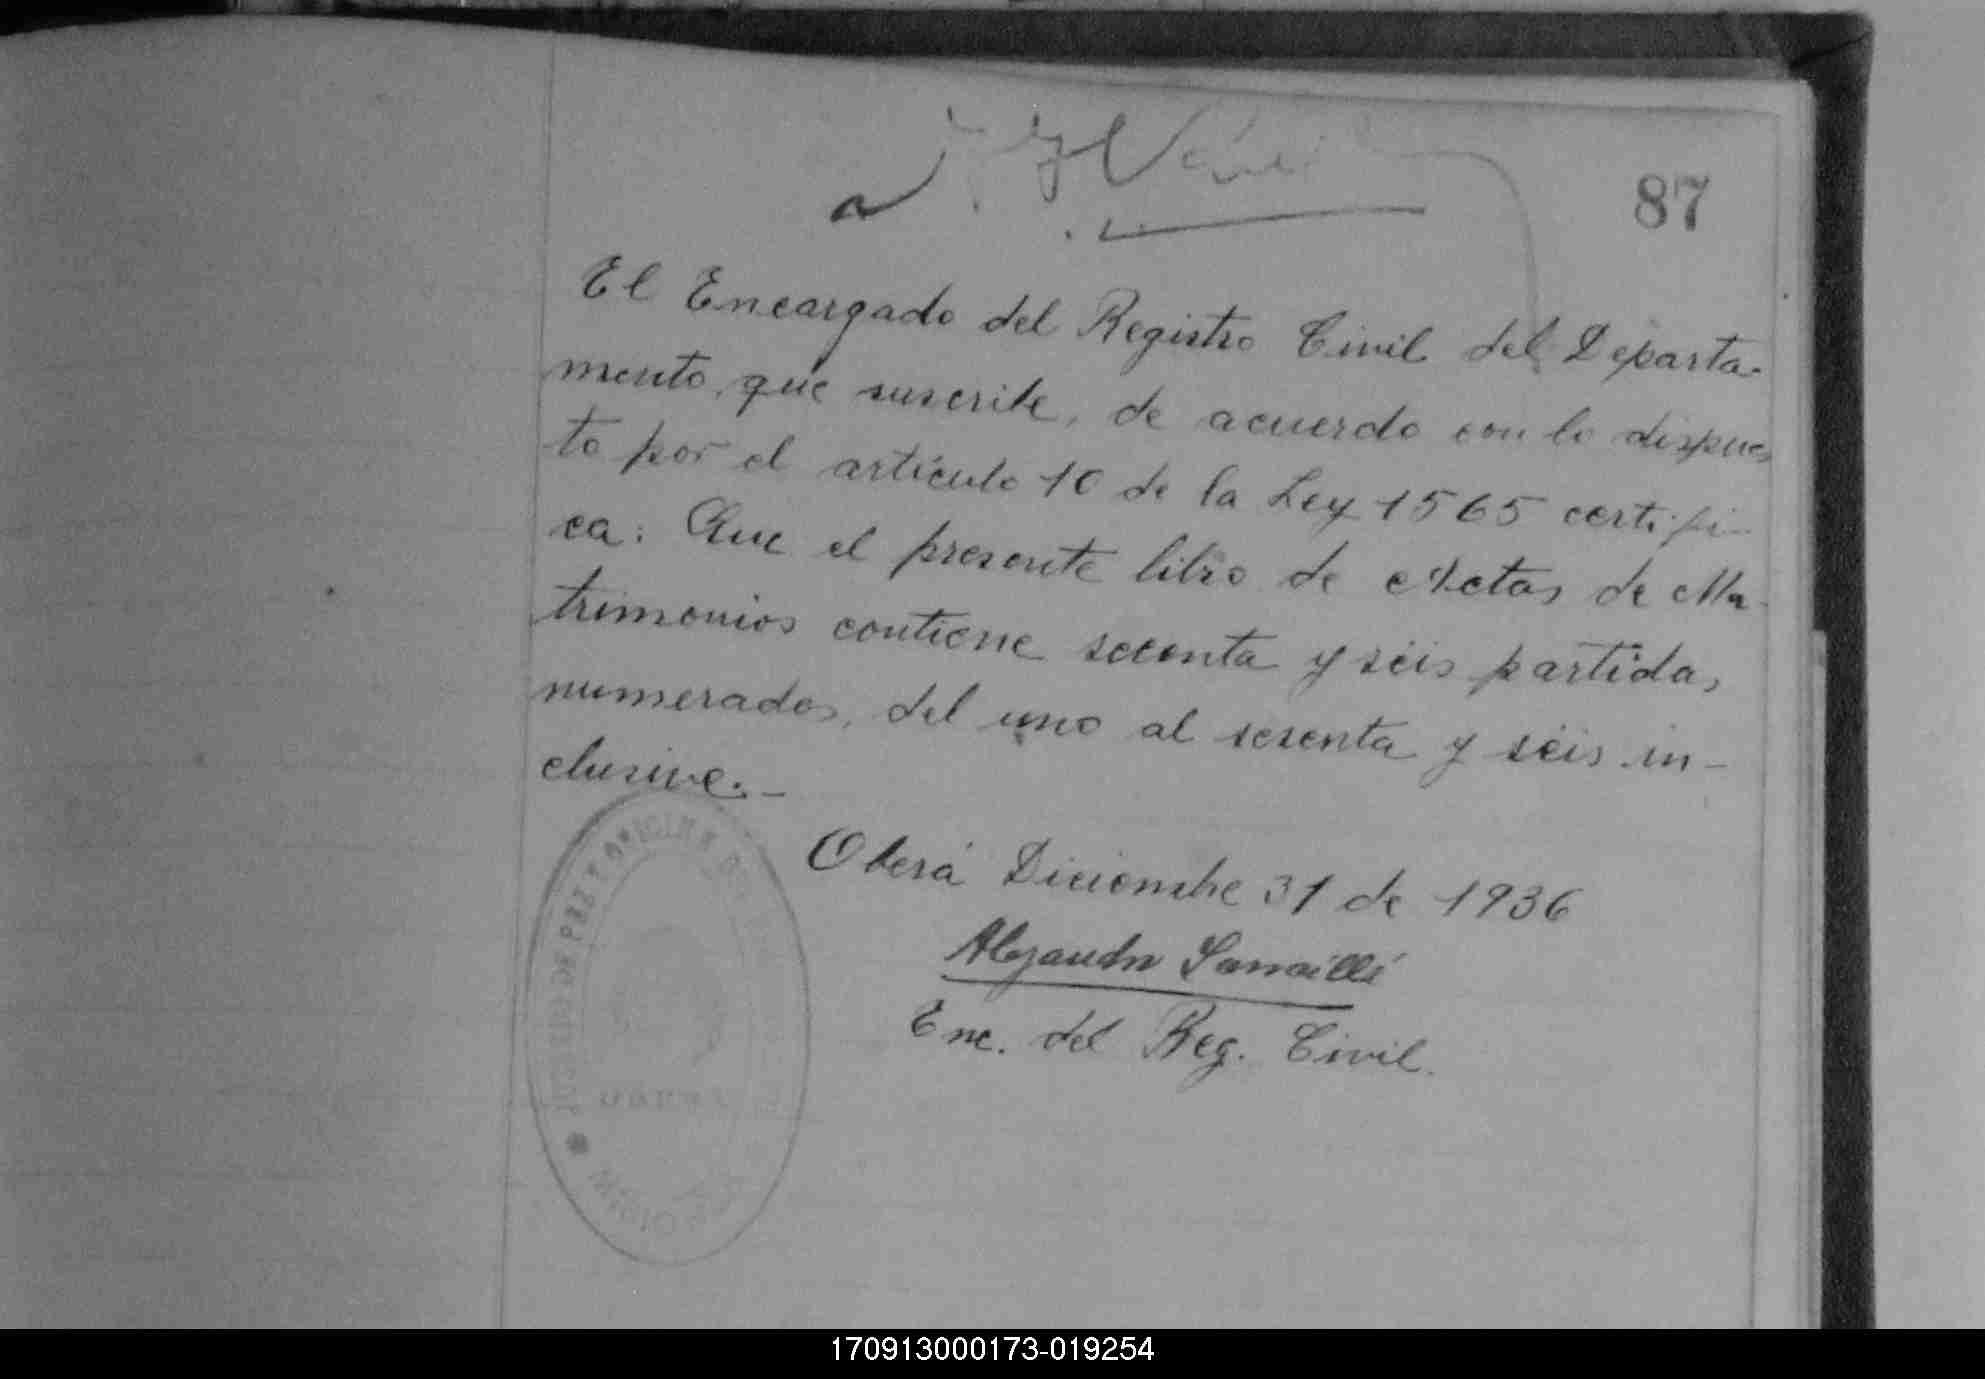 87
El Encargado del Registro Civil del Departa-
mento, que suscribe, de acuerdo con lo dispues
to por el artículo 10 de la Ley 1565 certifi-
ca: Que el presente libro de Actas de Ma-
trimonios contiene sesenta y seis partidas
numerados, del uno al sesenta y seis in-
clusive.-
Oberá Diciembre 31 de 1936
Alejandro
Enc. del Reg. Civil.
170913000173-019254